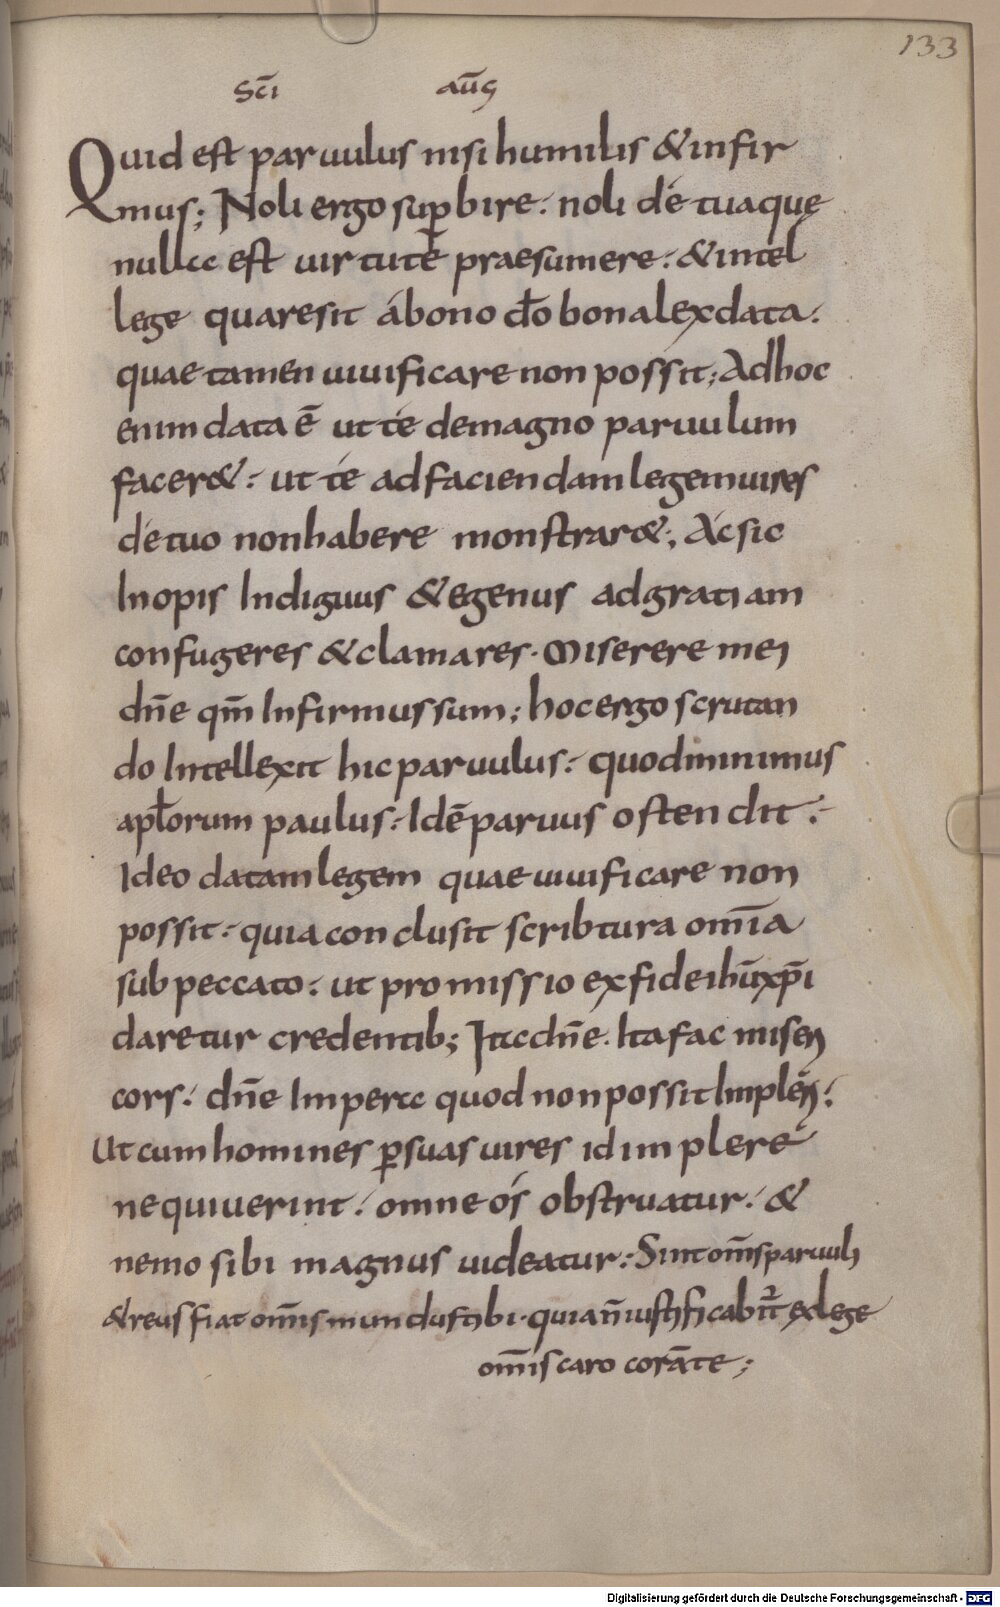 133
sc̄i aūg
Quid est paruulus nisi humilis & infir
mus; Noli ergo sup̄bire. noli dé tua quę
nulla est uirtute praesumere. & intel
lege quare sit ábono dō bona lex data.
quae tamen uiuificare non possit; Adhoc
enim data ē ut té demagno paruulum
facer&. ut té adfaciendam legem uires
dé tuo non habere monstrar&; Ác sic
Inopis Indiguus & egenus ad gratiam
confugeres & clamares. Miserere mei
dn̄e qm̄ Infirmus sum; hoc ergo scrutan
do Intellexit hic paruulus. quod minimus
apl̄orum paulus. Idē paruus ostendit.
Ideo datam legem quae uiuificare non
possit. quia conclusit scribtura om̄ia
sub peccato. ut promissio ex fide ih̄u xp̄i
daretur credentib; Ita dn̄e. Ita fac miseri
cors. dn̄e Impera quod non possit Impleri.
Ut cum homines p̄ suas uires id implere
nequiuerint. omne ós obstruatur. &
nemo sibi magnus uideatur. Sint om̄s paruuli
& reus fiat om̄is mundus tibi. quia n̄ iustificabit̄ ex lege
om̄is caro corā te;
Digitalisierung gefördert durch die Deutsche Forschungsgemeinschaft - DFG